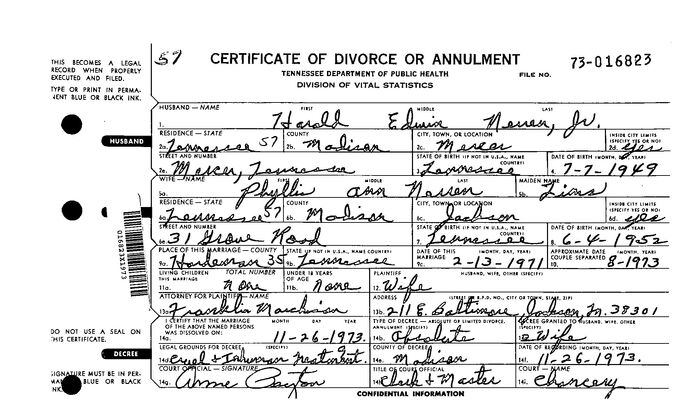 57
CERTIFICATE OF DIVORCE OR ANNULMENT
73-016823
TENNESSEE DEPARTMENT OF PUBLIC HEALTH
FILE NO.
DIVISION OF VITAL STATISTICS
THIS BECOMES A LEGAL
RECORD WHEN PROPERLY
EXECUTED AND FILED.
TYPE OR PRINT IN PERMA-
NENT BLUE OR BLACK INK.
HUSBAND
HUSBAND — NAME FIRST MIDDLE LAST
1. Harold Edwin Jr.
RESIDENCE — STATE COUNTY CITY, TOWN, OR LOCATION INSIDE CITY LIMITS (SPECIFY YES OR NO)
2a. Tennessee 57 2b. Madison 2c. Mercer 2d. yes
STREET AND NUMBER STATE OF BIRTH (IF NOT IN U.S.A., NAME COUNTRY) DATE OF BIRTH (MONTH, DAY, YEAR)
2e. Mercer, Tennessee 3. Tennessee 4. 7-7-1949
WIFE
WIFE — NAME FIRST MIDDLE LAST MAIDEN NAME
5a. Phyllis Ann 5b.
RESIDENCE — STATE COUNTY CITY, TOWN, OR LOCATION INSIDE CITY LIMITS (SPECIFY YES OR NO)
6a. Tennessee 57 6b. Madison 6c. Jackson 6d. yes
STREET AND NUMBER STATE OF BIRTH (IF NOT IN U.S.A., NAME COUNTRY) DATE OF BIRTH (MONTH, DAY, YEAR)
6e. 31 Grove Road 7. Tennessee 8. 6-4-1952
PLACE OF THIS MARRIAGE — COUNTY STATE (IF NOT IN U.S.A., NAME COUNTRY) DATE OF THIS MARRIAGE (MONTH, DAY, YEAR) DATE COUPLE SEPARATED (MONTH, YEAR)
9a. Hardeman 35 9b. Tennessee 9c. 2-13-1971 10. 8-1973
LIVING CHILDREN OF THIS MARRIAGE TOTAL NUMBER UNDER 18 YEARS OF AGE PLAINTIFF HUSBAND, WIFE, OTHER (SPECIFY)
11a. none 11b. None 12. Wife
ATTORNEY FOR PLAINTIFF — NAME ADDRESS (STREET OR R.F.D. NO., CITY OR TOWN, STATE, ZIP)
13a. Franklin Murchison 13b. 211 E. Baltimore, Jackson, Tn. 38301
I CERTIFY THAT THE MARRIAGE OF THE ABOVE NAMED PERSONS WAS DISSOLVED ON: MONTH DAY YEAR TYPE OF DECREE — ABSOLUTE OR LIMITED DIVORCE, ANNULMENT (SPECIFY) DECREE GRANTED TO HUSBAND, WIFE, OTHER (SPECIFY)
14a. 11-26-1973. 14b. Absolute Wife
LEGAL GROUNDS FOR DECREE (SPECIFY) COUNTY OF DECREE DATE OF RECORDING (MONTH, DAY, YEAR)
14d. Cruel & Inhuman Treatment. 14e. Madison 14f. 11-26-1973.
COURT OFFICIAL — SIGNATURE TITLE OF COURT OFFICIAL COURT — NAME
14g. Anne 14h. Clerk & Master 14i. Chancery
DO NOT USE A SEAL ON
THIS CERTIFICATE.
DECREE
SIGNATURE MUST BE IN PER-
BLUE OR BLACK
INK
CONFIDENTIAL INFORMATION